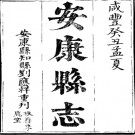 咸豐癸丑孟夏
安康縣志
安康縣知縣劉應祥重刊